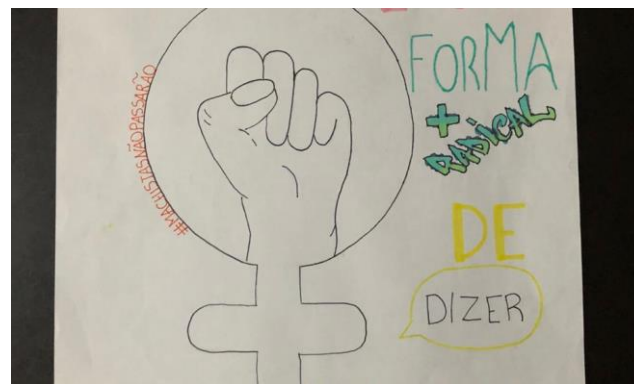 #MACHISTASNÃOPASSARÃO
FORMA
+
RADICAL
DE
DIZER